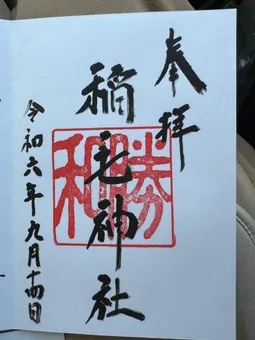 奉拝
稲毛神社
勝和
令和六年九月十四日